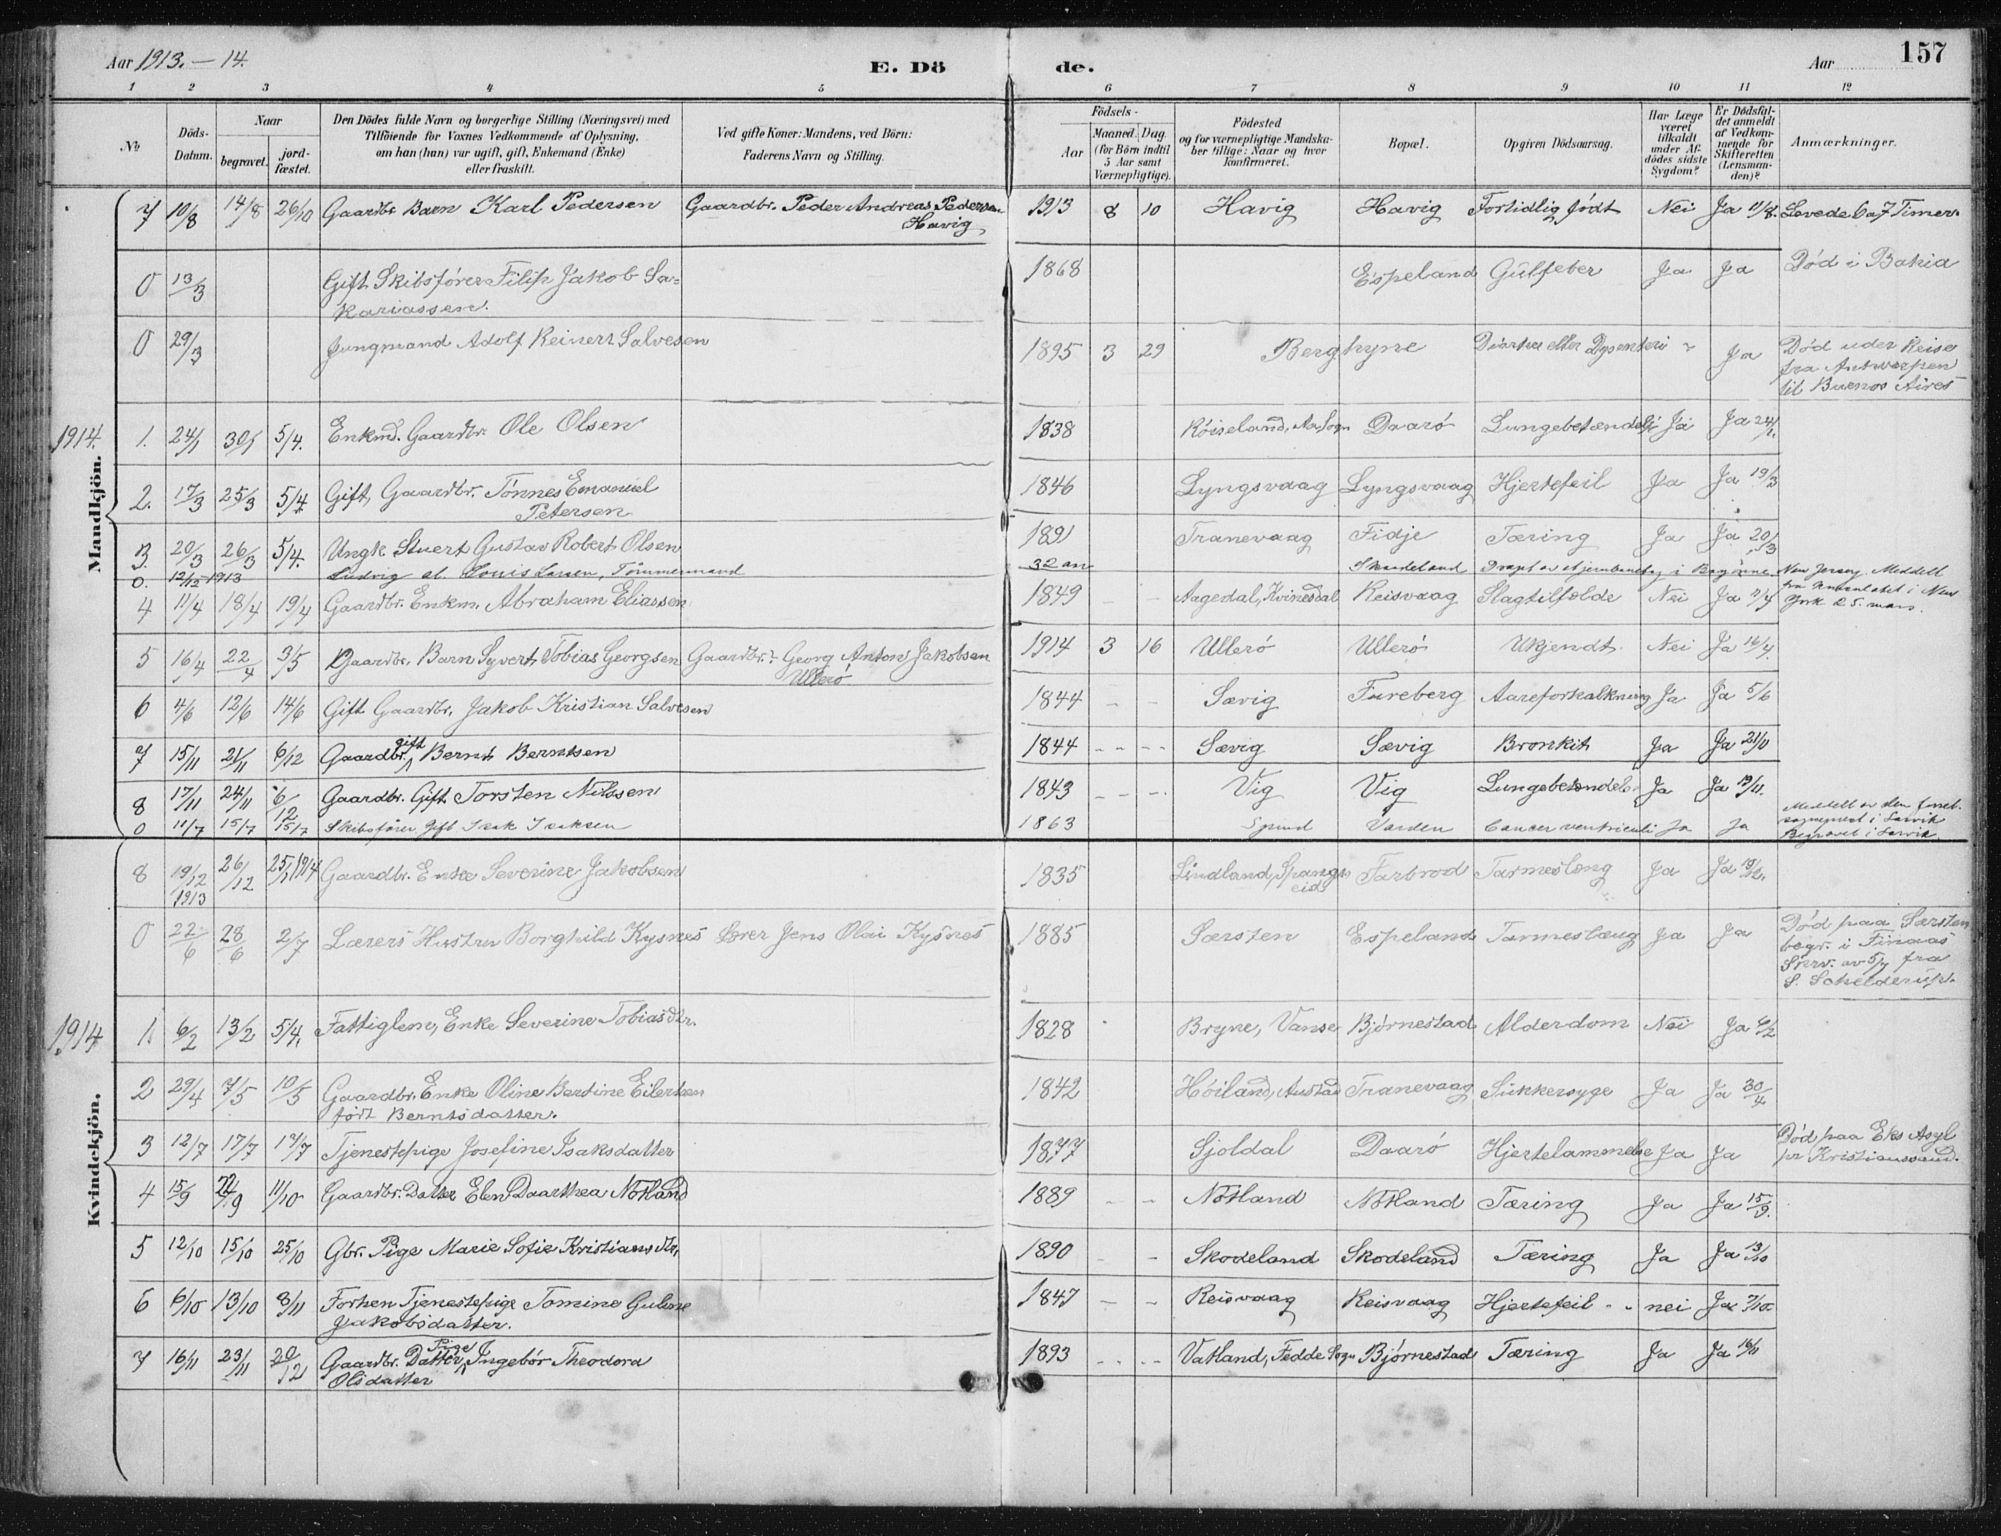 Aar 1913. — 14.
E. Dö de.
Aar 157
1 2 3 4 5 6 7 8 9 10 11 12
No
Döds-Datum.
Naar
begravet.
jordfæstet.
Den Dödes fulde Navn og borgerlige Stilling (Næringsvei) med
Tilföiende for Voxnes Vedkommende af Oplysning,
om han (han) var ugift, gift, Enkemand (Enke)
eller fraskilt.
Ved gifte Koner: Mandens, ved Börn:
Faderens Navn og Stilling.
Födsels-
Aar
Maaned. Dag.
(for Börn indtil
5 Aar samt
Værnepligtige).
Födested
og for værnepligtige Mandskaber tillige: Naar og hvor
konfirmeret.
Bopæl.
Opgiven Dödsaarsag.
Har Læge
været
tilkaldt
under Afdödes sidste
Sygdom?
Er Dödsfaldet anmeldt
af Vedkommende for
Skifteretten
(Lensmanden)?
Anmærkninger.
Mandkjön.
7 10/8 14/8 26/10 Gaardbr. Barn Karl Pedersen Gaardbr. Peder Andreas Pedersen Havig 1913 8 10 Havig Havig Fortidlig født Nei Ja 11/8. Levede 6 a 7 Timer.
0 13/3 Gift Skibsfører Filip Jakob Sakariassen. 1868 Espeland Gulfeber Ja Ja Död i Bahia
0 29/3 Jungmand Adolf Reinert Salvesen 1895 3 29 Berghyne Diarhea eller Dysenteri Ja Död uder Reise
fra Antwerpen
til Buenos Aires
1914. 1. 24/1 30/1 5/4. Enkmd. Gaardbr. Ole Olsen 1838 Röiseland, Sogn Daarö Lungebetændelse Ja Ja 24/1.
2. 17/3 25/3 5/4 Gift, Gaardbr. Tönnes Emanuel
Petersen 1846 Lyngsvaag Lyngsvaag Hjertefeil Ja Ja 19/3
3. 20/3 26/3 5/4. Ungk. Stuert Gustav Robert Olsen 1891 Tranevaag Fidje Tæring Ja Ja 20/3
0. 12/12 1913 Ludvig el. Louis Larsen, Tömmermand 32 aar Skaadeland Dræpt av et jernbanetog i Bayonne New Jersey. Meddelt
fra Generalatet i New
York 25. mars.
4 11/4 18/4 19/4 Gaardbr. Enkm. Abraham Eliassen 1849 - - Aagedal, Kvinesdal Reisvaag Slagtilfælde Nei Ja 11/4
5 16/4 22/4 3/5 Gaardbr. Barn Syvert Tobias Georgsen Gaardbr. Georg Anton Jakobsen
Ullerö 1914 3 16 Ullerö Ullerö Ukjendt Nei Ja 16/4.
6 4/6 12/6 14/6 Gift Gaardbr. Jakob Kristian Salvesen 1844 - - Sævig Fureberg Aareforkalkning Ja Ja 5/6
7 15/11 21/11 6/12 Gaardbr. gift Bernt Berntsen 1844 - - Sævig Sævig Bronkit Ja Ja 21/11
8 17/11 24/11 6/12 Gaardbr. Gift Torsten Nilssen 1843 - - Vig Vig Lungebetændelse Ja Ja 19/11.
0 11/7 15/7 15/7 Skibsfører Gift Isak Isaksen 1863 Spind Varden Cancer ventriculi Ja Ja Meddelt av den
sogneprest i Larvik
Begravet i Larvik
Kvindekjön.
8 19/12 1913 26/12 25/1 1914 Gaardbr. Enke Severine Jakobsen 1835 Lindland, Spangereid Farbrod Tarmeslæng Ja Ja 19/12.
0 22/6 28/6 2/7 Lærers Hustru Borghild Kysnes Lærer Jens Olai Kysnes 1885 Særsten Espeland Tarmeslæng Ja Ja Död paa Særsten
begr. i Finaas
Skrv. av 5/7 fra
S. Schelderup.
1914 1. 6/2 13/2 5/4. Fattiglem, Enke Severine Tobiasdtr. 1828 Bryne, Vanse Björnestad Alderdom Nei Ja 6/2
2 29/4 7/5 10/5 Gaardbr. Enke Oline Bertine Eilertsen
født Berntsdatter. 1842 Höiland, Austad Tranevaag Sukkersyge Ja Ja 30/4.
3 12/7 17/7 17/7 Tjenestepige Josefine Isaksdatter 1877 Sjoldal Daarö Hjertelammelse Ja Ja Död paa Eks Asyl
pr Kristianssand.
4 15/9 21/9 11/10 Gaardbr. Datter Elen Daarthea Notland 1889 - - Notland Notland Tæring Ja Ja 15/9.
5 12/10 15/10 25/10 Gbr. Pige Marie Sofie Kristiansdtr. 1890 - - Skodeland Skodeland Tæring Ja Ja 13/10
6 6/10 13/10 8/11 Forhen Tjenestepige Tomine Guline
Jakobsdatter. 1847 - - Reisvaag Reisvaag Hjertefeil nei Ja 7/10.
7 16/11 23/11 20/12 Gaardbr. Datter, Pige Ingebör Theodora
Olsdatter 1893 - - Vatland, Fedde Sogn Björnestad Tæring Ja Ja 16/11